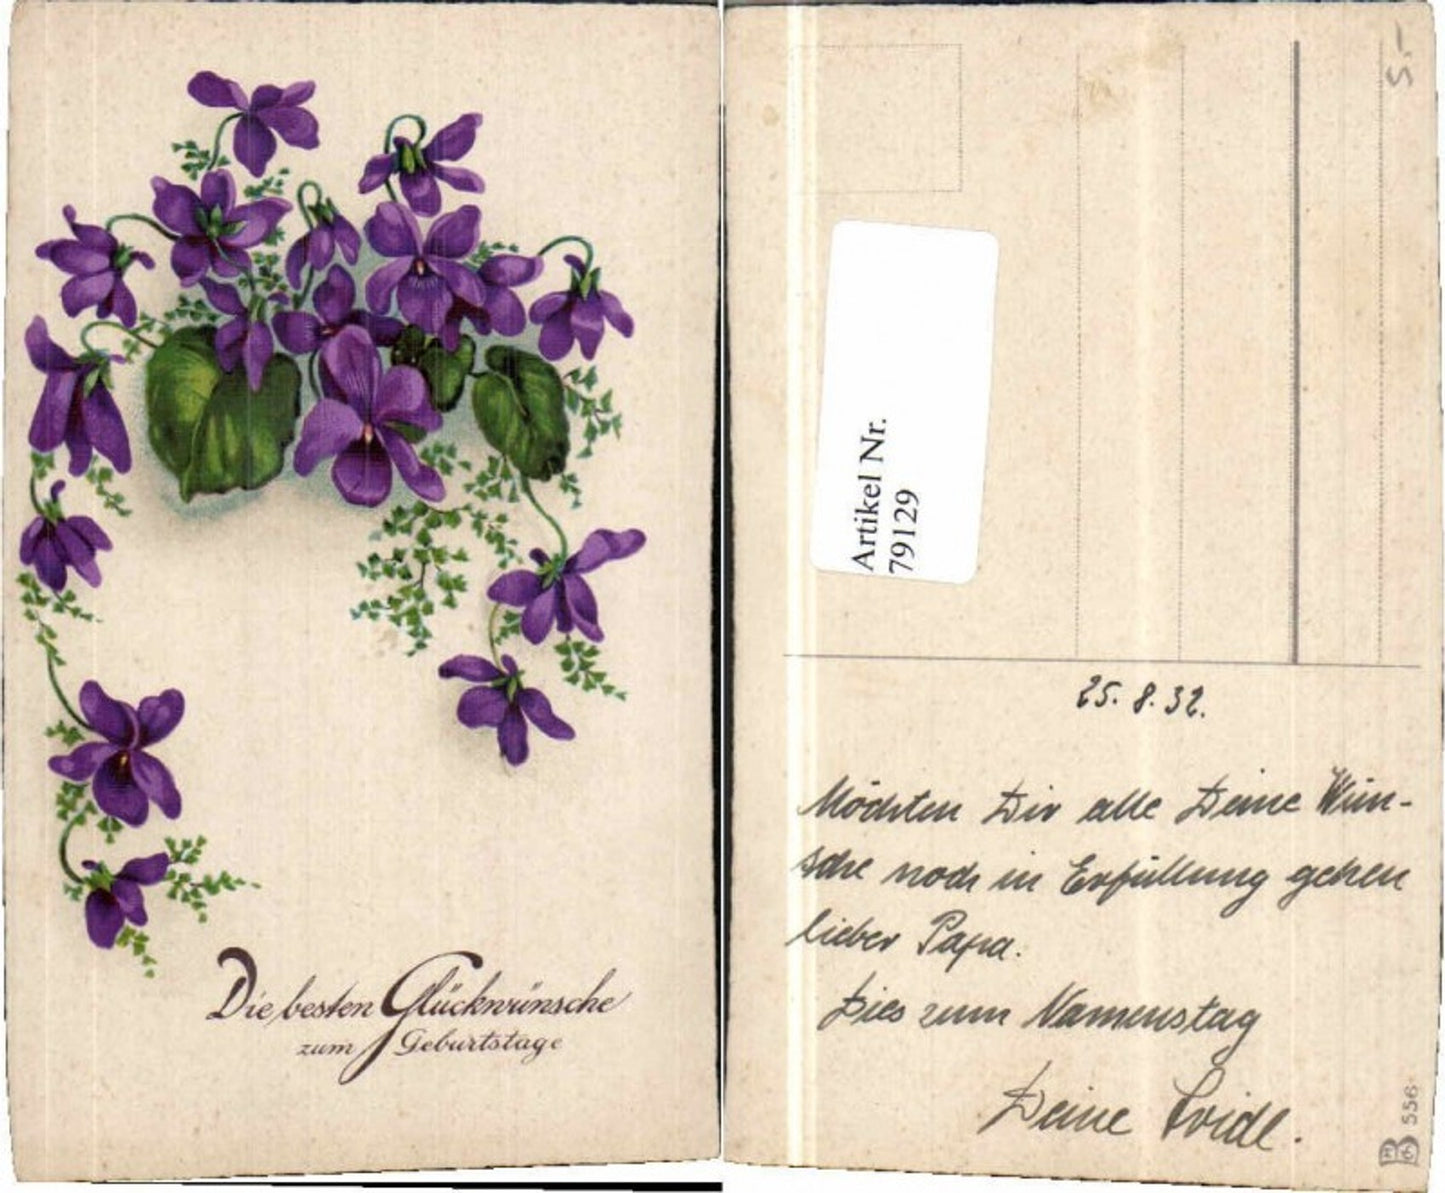 Die besten Glückwünsche
zum Geburtstage
5.-
Artikel Nr.
79129
25. 8. 32.
Möchten Dir alle Deine Wün-
sche noch in Erfüllung gehen
lieber Papa.
Dies zum Namenstag
Deine
556